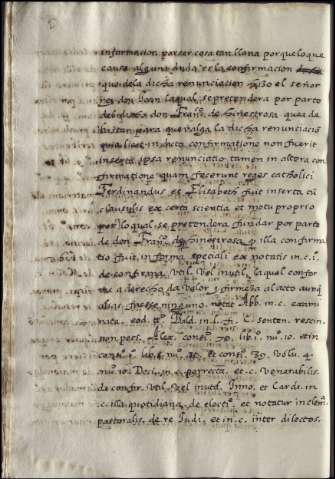 informacion por ser cosa tan llana porque lo que
causa alguna duda es la confirmacion
que de la dicha renunciacion hizo el señor
rei don Joan la qual se pretendera por parte
de don Fran.co de hinestrosa que a de
bastar para que valga la dicha renunciacion
quia licet in dicta confirmatione non fuerit
inserta ipsa renunciatio tamen in altera con
firmatione quam fecerunt reges catholici
Ferdinandus et Elisabeth fuit inserta cũ
clausulis ex certa scientia et motu proprio
por lo qual se pretendera fundar por parte
de don Fran.co de hinestrosa q̃ illa confirma
tio fuit in forma speciali ex notatis in c. 1.
de confirma. util. vel inutil. la qual confor
me a derecho da valor y firmeza al acto aunq̃
antes fuesse ninguno. notat Abb. in c. exami
nata. eod. tt.o Bald. in l. fi. C. senten. rescin.
non poss. Alex. consi.o 70. lib. 1.o nu.o 10. et in
consi.o lib. 6. nu. et consi.o 79. volu. 4.
nu.o 10. Deci. in c. porrecta. et c. venerabilis
de confir. util. vel inutil. Inno. et Card. in
c. illa quotidiana de electi.o et notatur in clem.
pastoralis. de re iudi. et in c. inter dilectos.